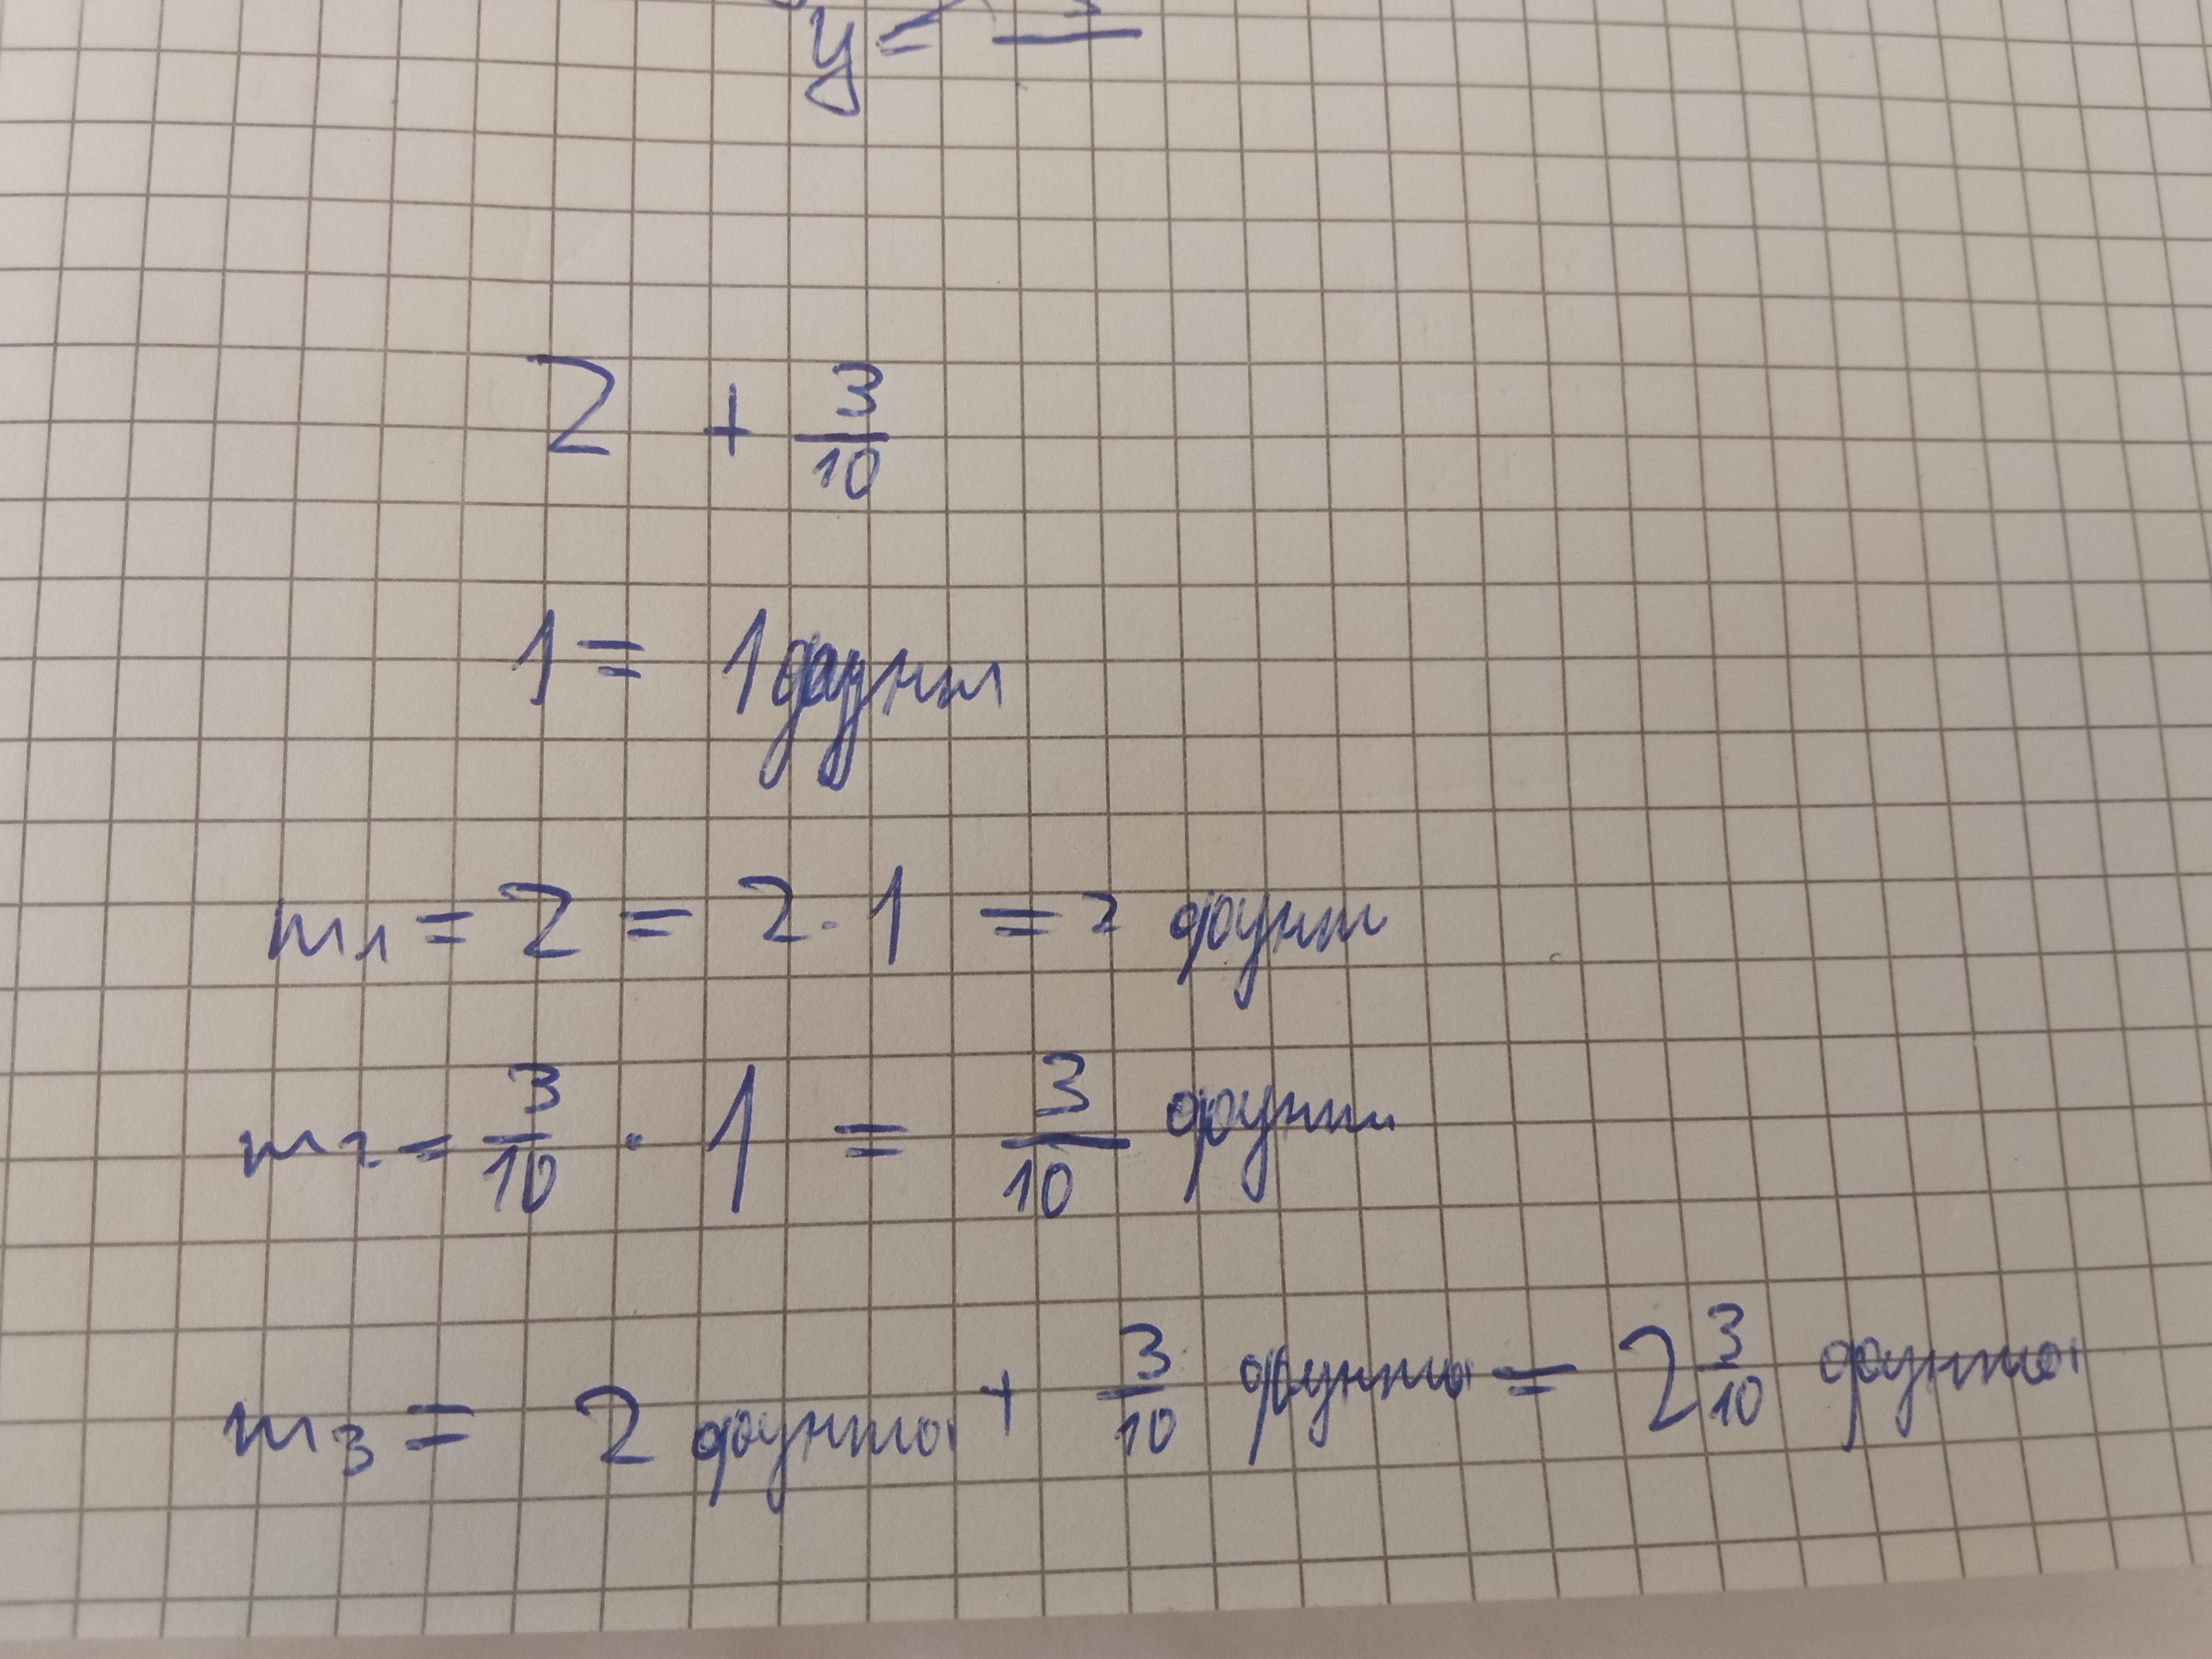 y =
2 + 3/10
1 = 1 фунт
m1 = 2 = 2 · 1 = 2 фунт
m2 = 3/10 · 1 = 3/10 фунт
m3 = 2 фунта + 3/10 фунты = 2 3/10 фунта